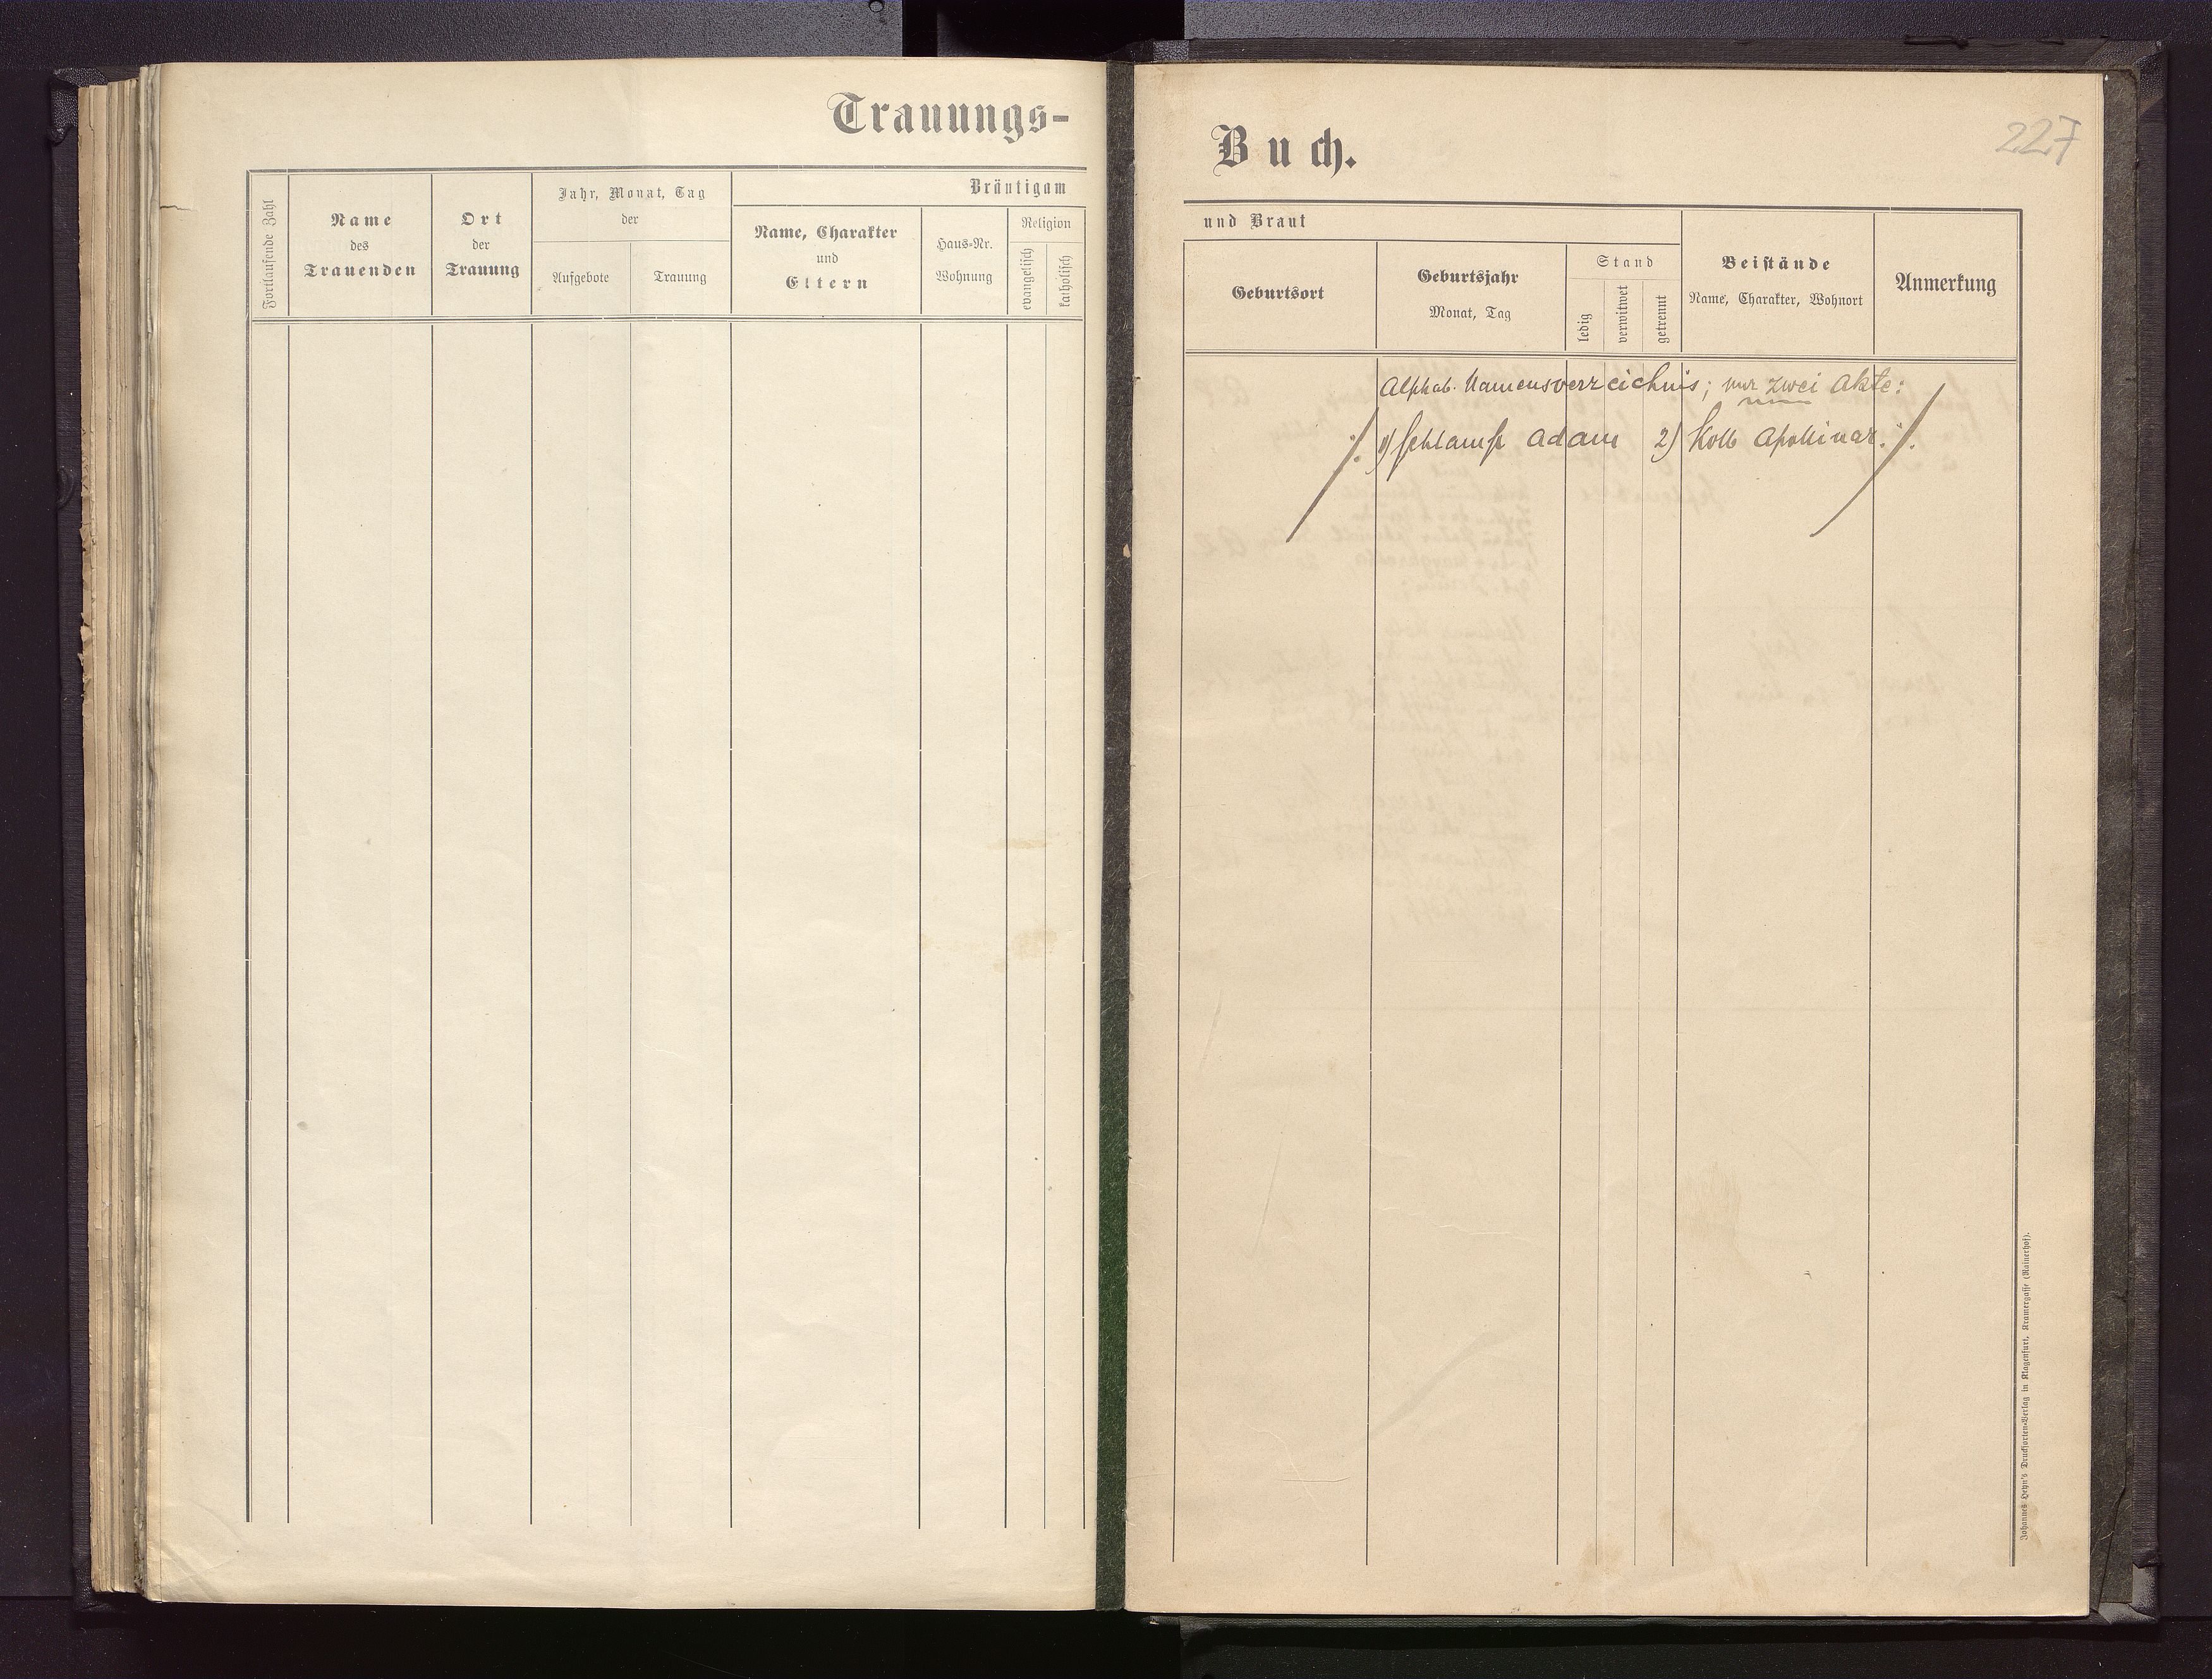 Trauungs-
Fortlaufende Zahl
Name
des
Trauenden
Ort
der
Trauung
Jahr, Monat, Tag
der
Aufgebote
Trauung
Bräutigam
Name, Charakter
und
Eltern
Haus-Nr.
Wohnung
Religion
evangelisch
katholisch
Buch.
227
und Braut
Geburtsort
Geburtsjahr
Monat, Tag
Stand
ledig
verwitwet
getrennt
Beistände
Name, Charakter, Wohnort
Anmerkung
Alphab. Namensverzeichnis; nur zwei Akte:
1) Schlampf Adam 2) Kolb Apollinar.
Johannes Heyn's Drucksorten-Verlag in Klagenfurt, Kramergasse (Rainerhof).